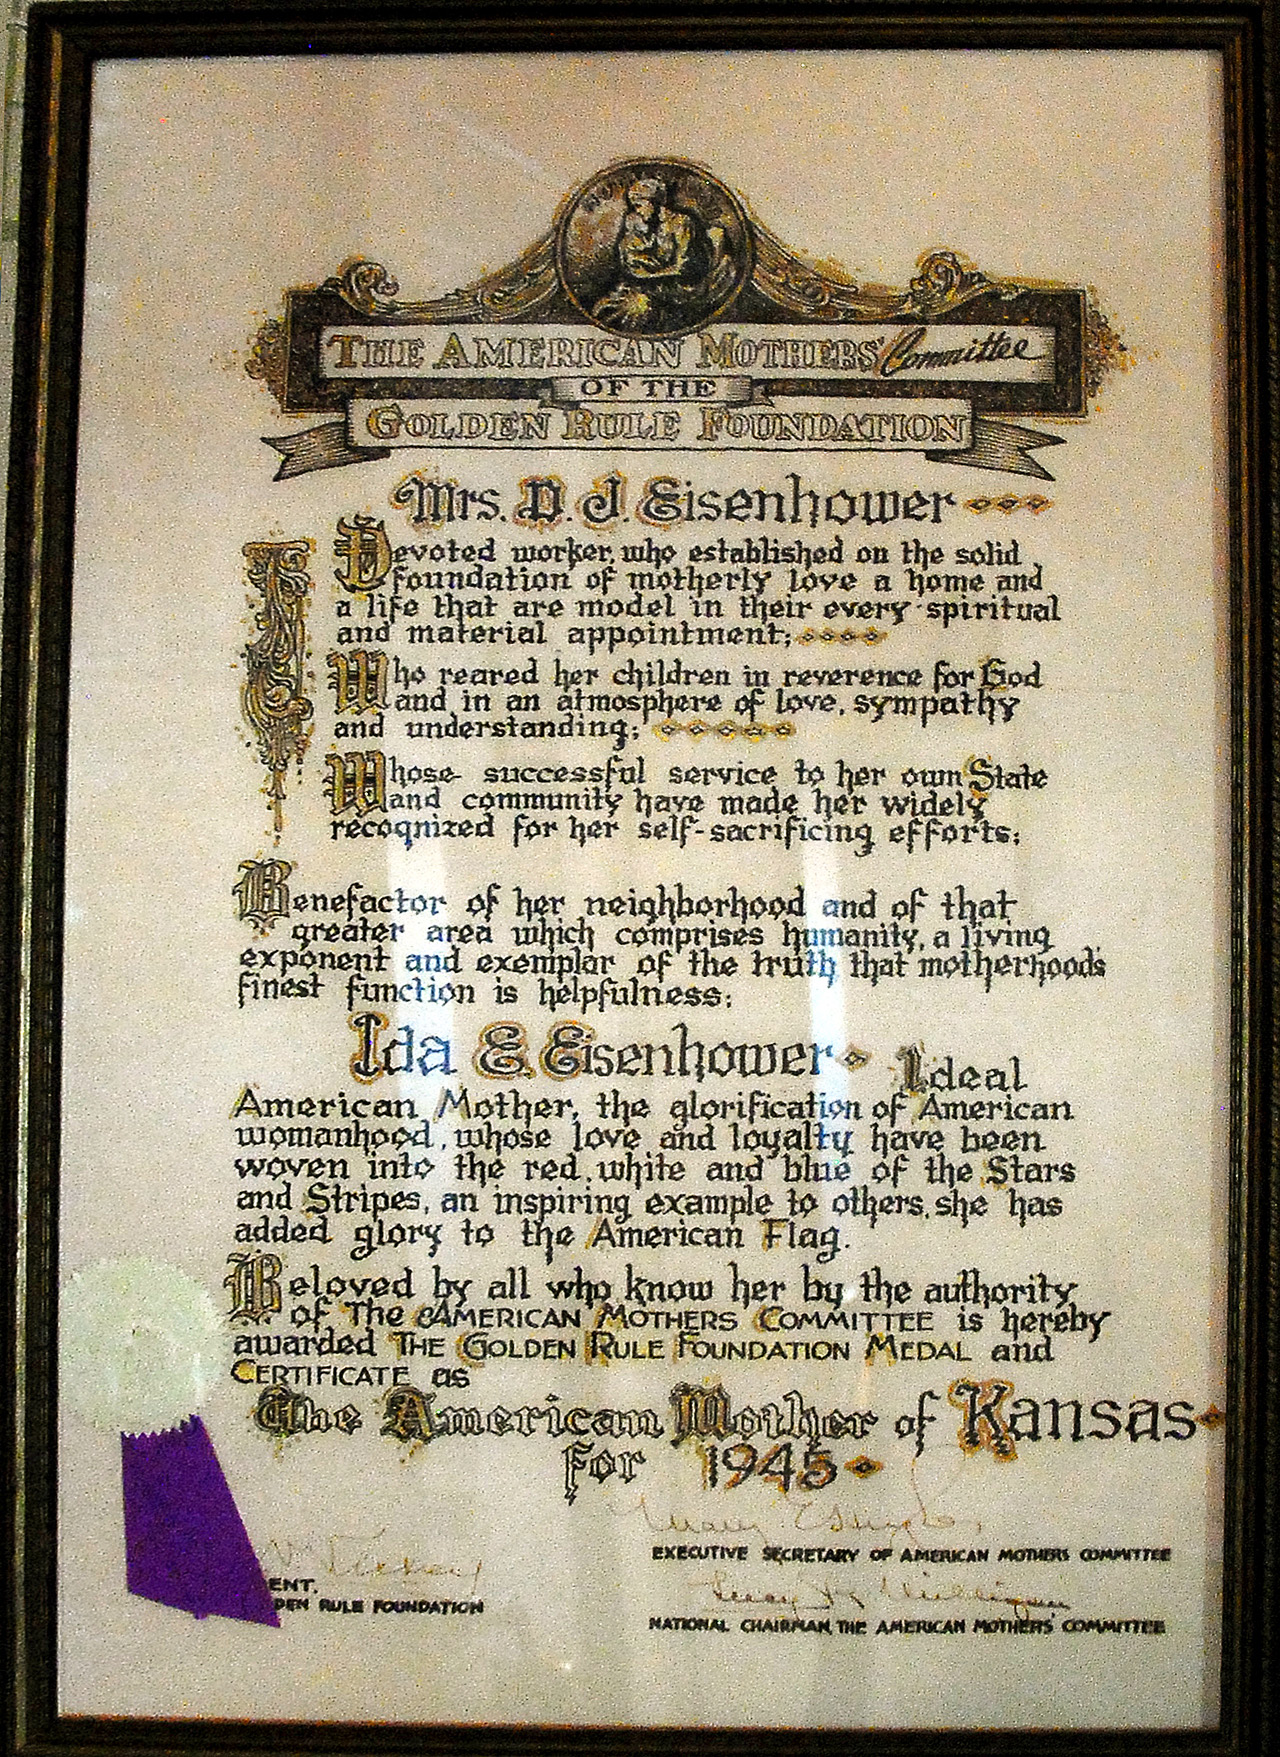 THE AMERICAN MOTHERS' Committee
OF THE
GOLDEN RULE FOUNDATION
Mrs. D. J. Eisenhower
Devoted worker, who established on the solid
foundation of motherly love a home and
a life that are model in their every spiritual
and material appointment;
Who reared her children in reverence for God
and in an atmosphere of love, sympathy
and understanding;
Whose successful service to her own State
and community have made her widely
recognized for her self-sacrificing efforts;
Benefactor of her neighborhood and of that
greater area which comprises humanity, a living
exponent and exemplar of the truth that motherhoods
finest function is helpfulness;
Ida E. Eisenhower Ideal
American Mother, the glorification of American
womanhood, whose love and loyalty have been
woven into the red, white and blue of the Stars
and Stripes, an inspiring example to others, she has
added glory to the American Flag.
Beloved by all who know her by the authority
of THE AMERICAN MOTHERS COMMITTEE is hereby
awarded THE GOLDEN RULE FOUNDATION MEDAL and
CERTIFICATE as
The American Mother of Kansas
for 1945
EXECUTIVE SECRETARY OF AMERICAN MOTHERS COMMITTEE
ENT.
DEN RULE FOUNDATION
NATIONAL CHAIRMAN, THE AMERICAN MOTHERS' COMMITTEE